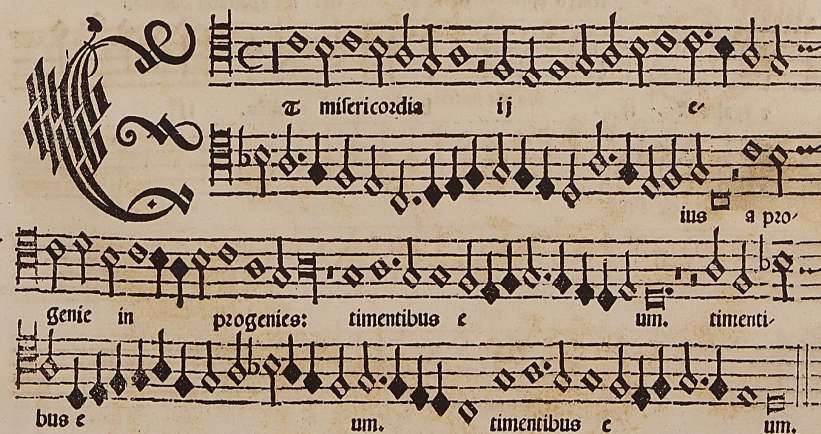 ET misericordia ij e-
ius a pro-
genie in progenies: timentibus e um. timenti-
bus e um. timentibus e um.